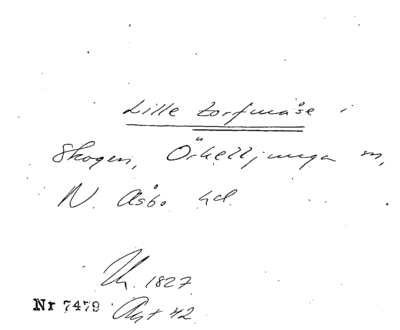 Lille torfmåse i
Skogen, Örkelljunga m,
N. Åsbo hd.
Uk. 1827
Nr 7479 Akt 42